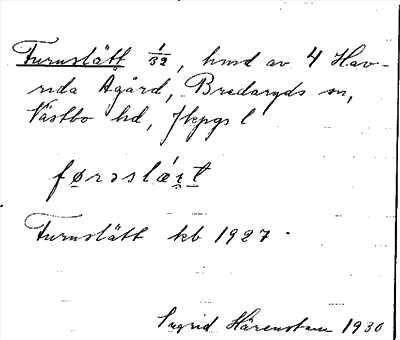 Furuslätt 1/32, hmd av 4 Hav-
rida Ågård, Bredaryds sn,
Västbo hd, Jkpgs l
førəslæ̀t
Furuslätt kb 1927
Ingrid Härenstam 1930